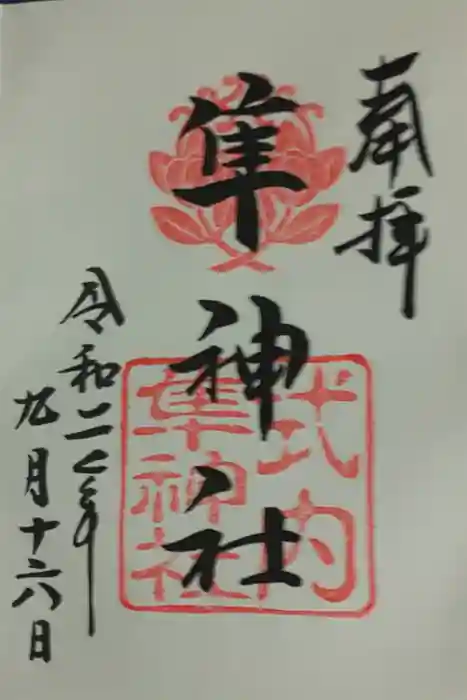 奉拝
隼神社
式内
隼神社
令和二年
九月十六日